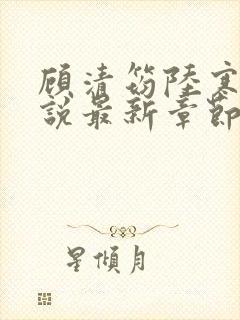 顾清笏陆寒
说最新章节
星倾月